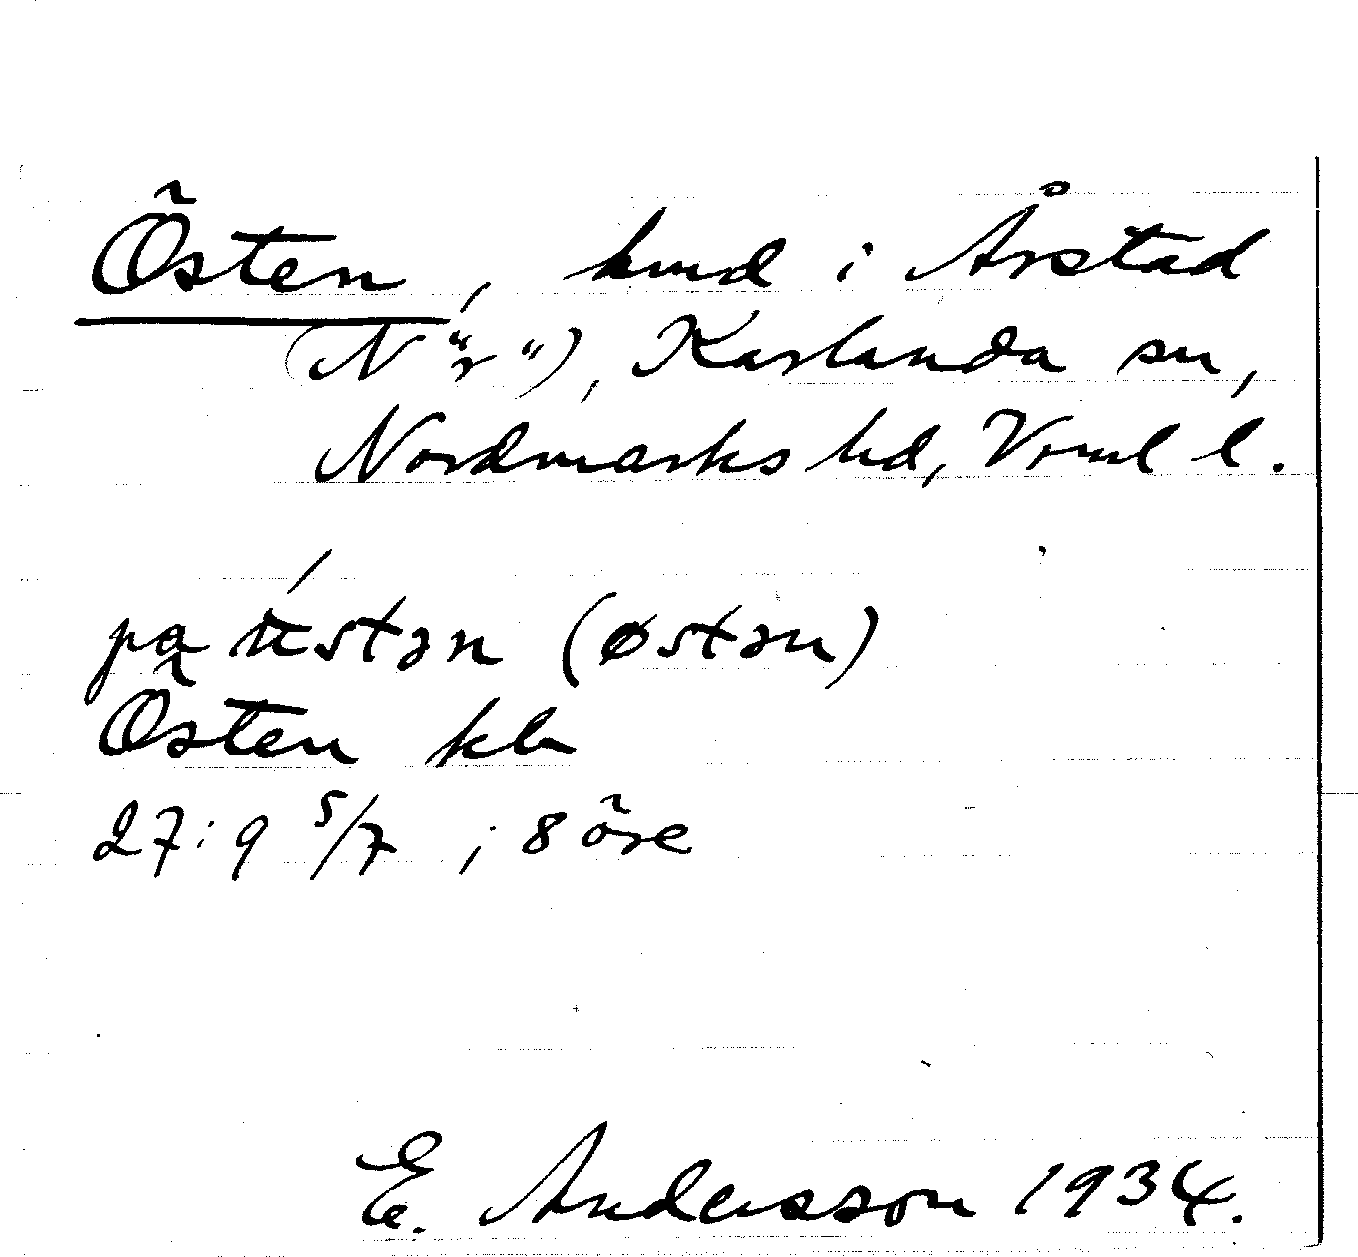 Östen, hmd i Årstad
(N "r"), Karlanda sn,
Nordmarks hd, Vrml l.
på östən (østən)
Östen kb
27:9 5/7 ; 8 öre
E. Andersson 1934.